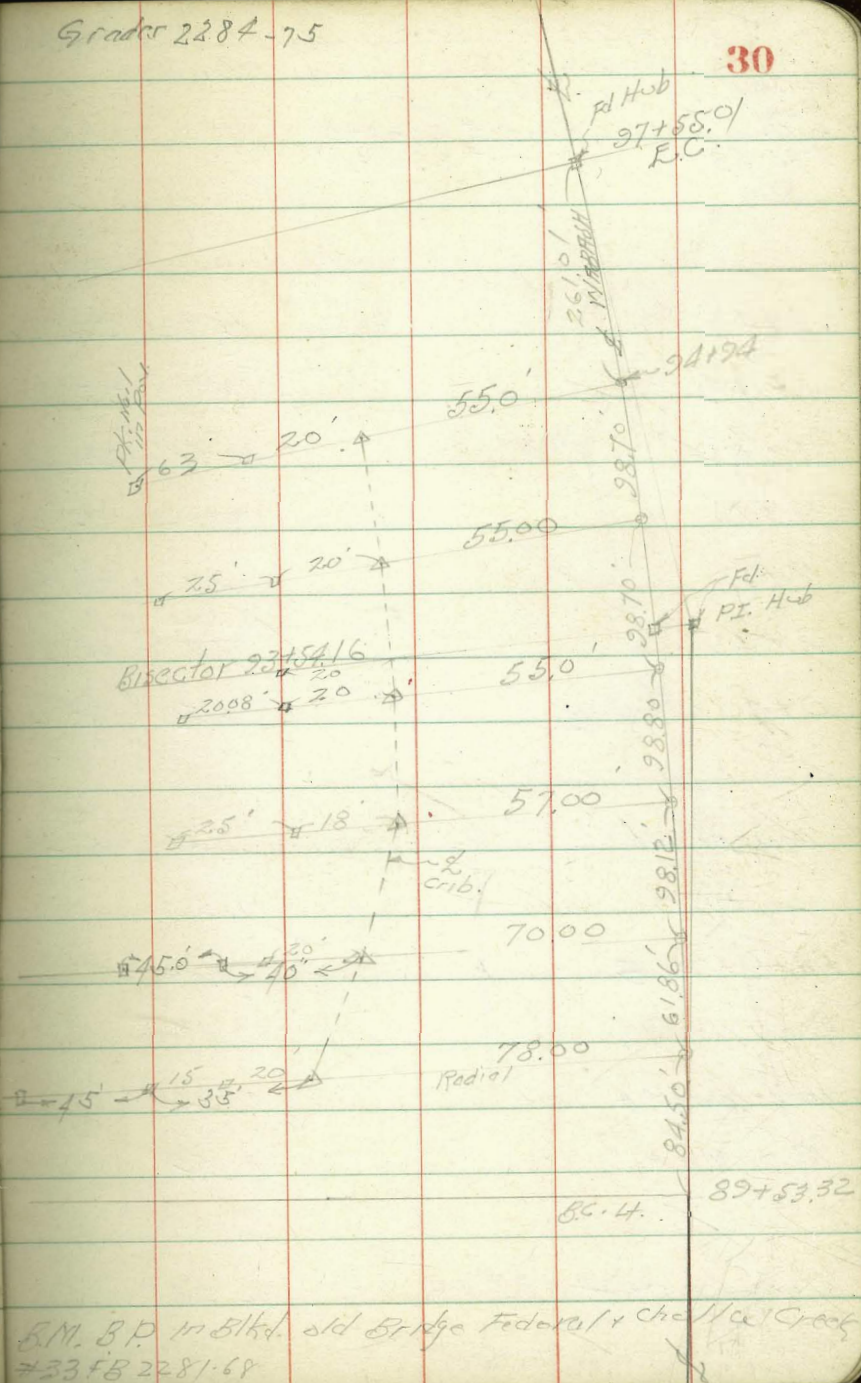 Grades 2284-75
30
℄
Fd Hub
97+55.01
E.C.
261.01'
℄ WABASH
94+94
PK. No. 1
in Pav.
63
20'
55.0'
98.70'
25'
20'
55.00
98.70'
Fd.
P.I. Hub
Bisector 93+54.16
20
20.08'
20
55.0'
98.80
25'
18'
57.00'
98.12'
℄
Crib.
45.0'
20'
40'
70.00
61.86'
45'
15
20'
35'
78.00
Radial
84.50'
B.C. 4.
89+53.32
B.M. B.P. in Blkd. old Bridge Federal & Chollas Creek
#33 FB 2281-68
℄